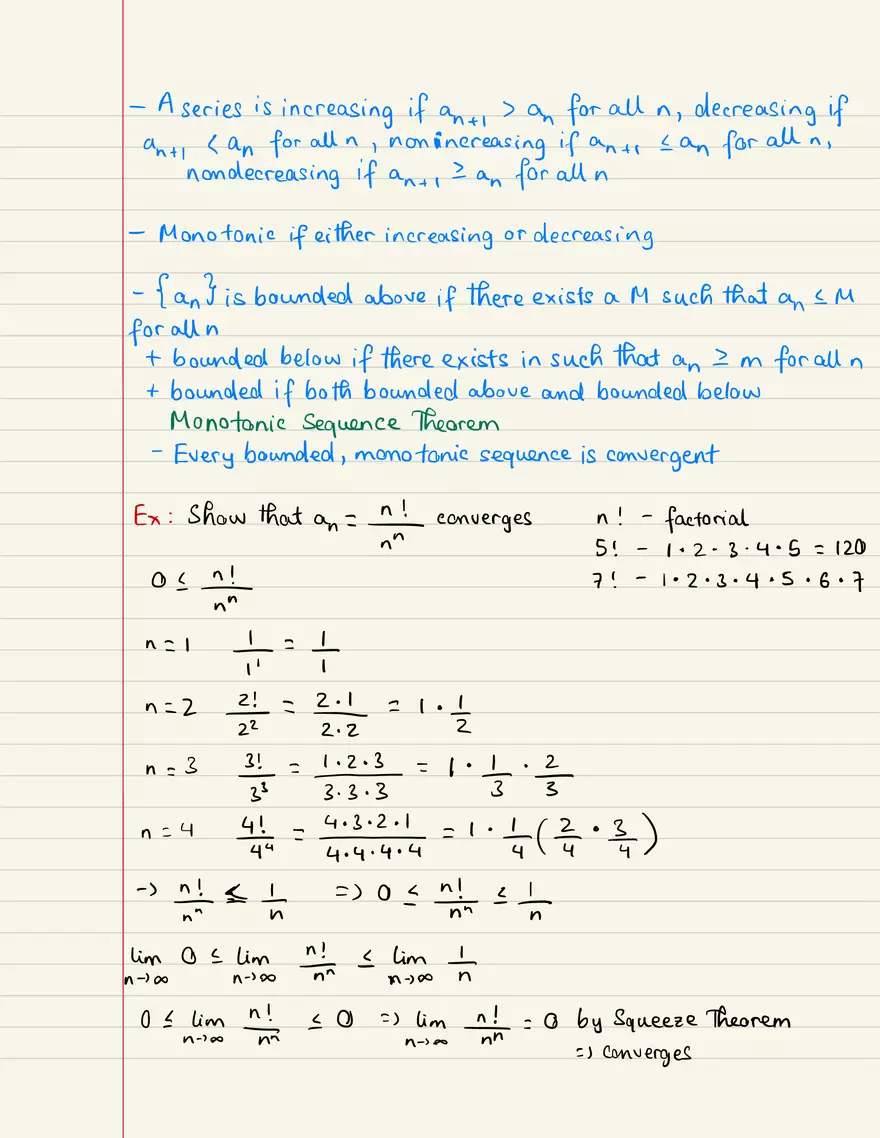 - A series is increasing if aₙ₊₁ > aₙ for all n, decreasing if
aₙ₊₁ < aₙ for all n, nonincreasing if aₙ₊₁ ≤ aₙ for all n,
nondecreasing if aₙ₊₁ ≥ aₙ for all n
- Monotonic if either increasing or decreasing
- {aₙ} is bounded above if there exists a M such that aₙ ≤ M
for all n
+ bounded below if there exists in such that aₙ ≥ m for all n
+ bounded if both bounded above and bounded below
Monotonic Sequence Theorem
- Every bounded, monotonic sequence is convergent
Ex: Show that aₙ = n!/nⁿ converges
n! - factorial
5! - 1·2·3·4·5 = 120
7! - 1·2·3·4·5·6·7
0 ≤ n!/nⁿ
n=1 1/1¹ = 1/1
n=2 2!/2² = 2·1/2·2 = 1·1/2
n=3 3!/3³ = 1·2·3/3·3·3 = 1·1/3·2/3
n=4 4!/4⁴ = 4·3·2·1/4·4·4·4 = 1·1/4(2/4·3/4)
-> n!/nⁿ ≤ 1/n => 0 ≤ n!/nⁿ ≤ 1/n
lim n→∞ 0 ≤ lim n→∞ n!/nⁿ ≤ lim n→∞ 1/n
0 ≤ lim n→∞ n!/nⁿ ≤ 0 => lim n→∞ n!/nⁿ = 0 by Squeeze Theorem
=> converges